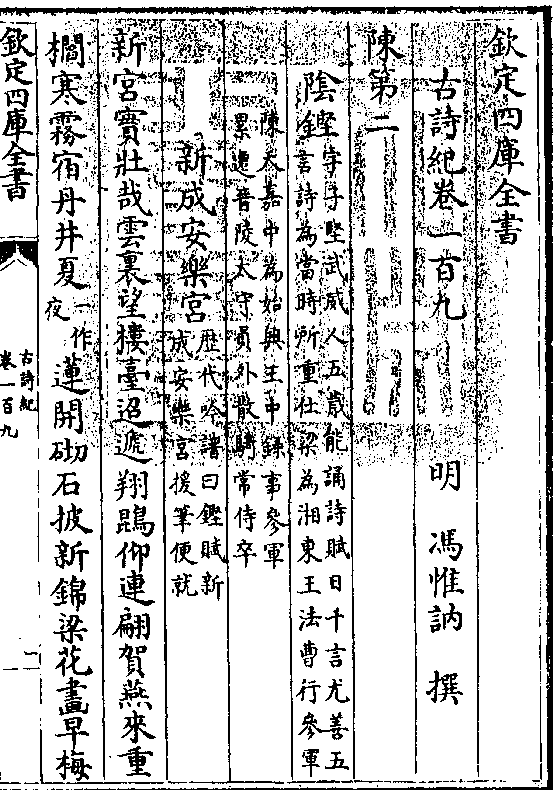 欽定四庫全書
古詩紀卷一百九
明 馮惟訥 撰
陳第二
陰鏗字子堅武威人五歲能誦詩賦日千言尤善五
言詩為當時所重仕梁為湘東王法曹行參軍
陳天嘉中為始興王中錄事參軍
累遷晉陵太守員外散騎常侍卒
新成安樂宮歴代吟譜曰鏗賦新
成安樂宮援筆便就
新宮實壯哉雲裏望樓臺迢遞翔鵾仰連翩賀燕來重
櫩寒霧宿丹井夏一作
夜蓮開砌石披新錦梁花畫早梅
欽定四庫全書
古詩紀
卷一百九
一